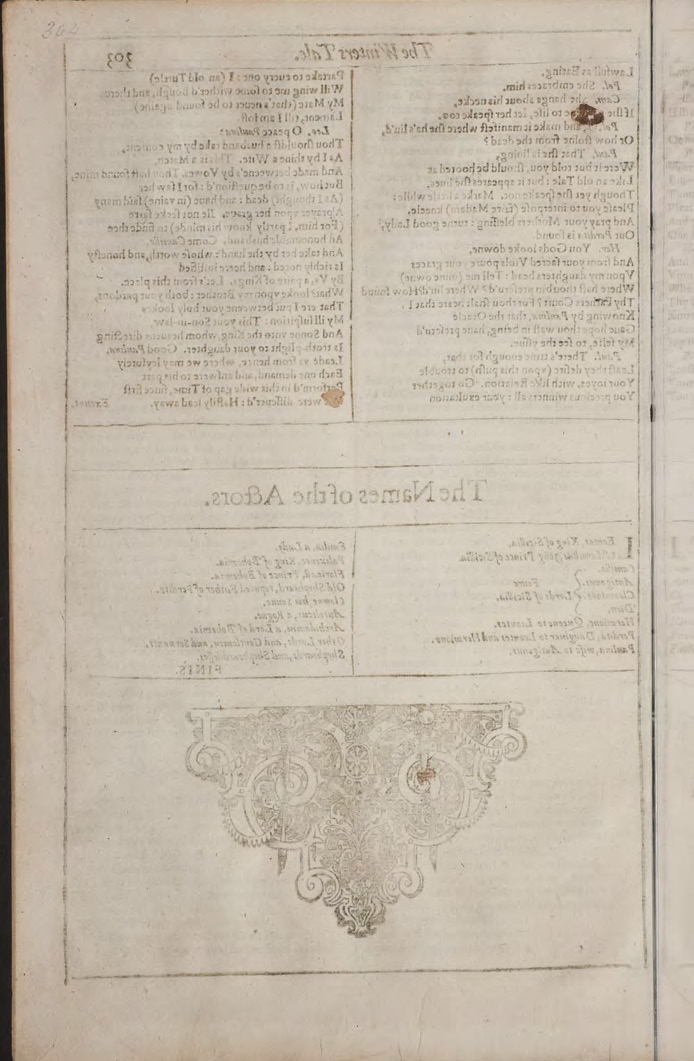 304
The Winters Tale. 303
Lawfull as Eating.
Pol. She embraces him.
Cam. She hangs about his necke,
If ſhe to life, let her ſpeake too.
Pol. and make it manifeſt where ſhe ha's liu'd,
Or how ſtolne from the dead?
Paul. That ſhe is liuing,
Were it but told you, ſhould be hooted at
Like an old Tale: but it appeares ſhe liues,
Though yet ſhe ſpeake not. Marke a little while:
Pleaſe you to interpoſe (faire Madam) kneele,
And pray your Mothers bleſſing: turne good Lady,
Our Perdita is found.
Her. You Gods looke downe,
And from your ſacred Viols poure your graces
Vpon my daughters head: Tell me (mine owne)
Where haſt thou bin preſeru'd? Where liu'd? How found
Thy Fathers Court? For thou ſhalt heare that I
Knowing by Paulina, that the Oracle
Gaue hope thou waſt in being, haue preſeru'd
My ſelfe, to ſee the yſſue.
Paul. There's time enough for that,
Leaſt they deſire (vpon this puſh) to trouble
Your ioyes, with like Relation. Go together
You precious winners all: your exultation
Partake to euery one: I (an old Turtle)
Will wing me to ſome wither'd bough, and there
My Mate (that's neuer to be found againe)
Lament, till I am loſt.
Leo. O peace Paulina:
Thou ſhouldſt a husband take by my conſent,
As I by thine a Wife. This is a Match,
And made betweene's by Vowes. Thou haſt found mine,
But how, is to be queſtion'd: for I ſaw her
(As I thought) dead: and haue (in vaine) ſaid many
A prayer vpon her graue. Ile not ſeeke farre
(For him, I partly know his minde) to finde thee
An honourable husband. Come Camillo,
And take her by the hand: whoſe worth, and honeſty
Is richly noted: and heere iuſtified
By Vs, a paire of Kings. Let's from this place.
What? looke vpon my Brother: both your pardons,
That ere I put betweene your holy lookes
My ill ſuſpition: This your Son-in-law,
And Sonne vnto the King, whom heauens directing
Is troth-plight to your daughter. Good Paulina,
Leade vs from hence, where we may leyſurely
Each one demand, and anſwere to his part
Perform'd in this wide gap of Time, ſince firſt
were diſſeuer'd: Haſtily lead away. Exeunt.
The Names of the Actors.
Leontes, King of Sicillia.
Mamillus, yong Prince of Sicillia.
Camillo.
Antigonus. Foure
Cleomines. Lords of Sicillia.
Dion.
Hermione, Queene to Leontes.
Perdita, Daughter to Leontes and Hermione.
Paulina, wife to Antigonus.
Emilia, a Lady.
Polixenes, King of Bohemia.
Florizell, Prince of Bohemia.
Old Shepheard, reputed Father of Perdita.
Clowne, his Sonne.
Autolicus, a Rogue.
Archidamus, a Lord of Bohemia.
Other Lords, and Gentlemen, and Seruants.
Shepheards, and Shephearddeſſes.
FINIS.